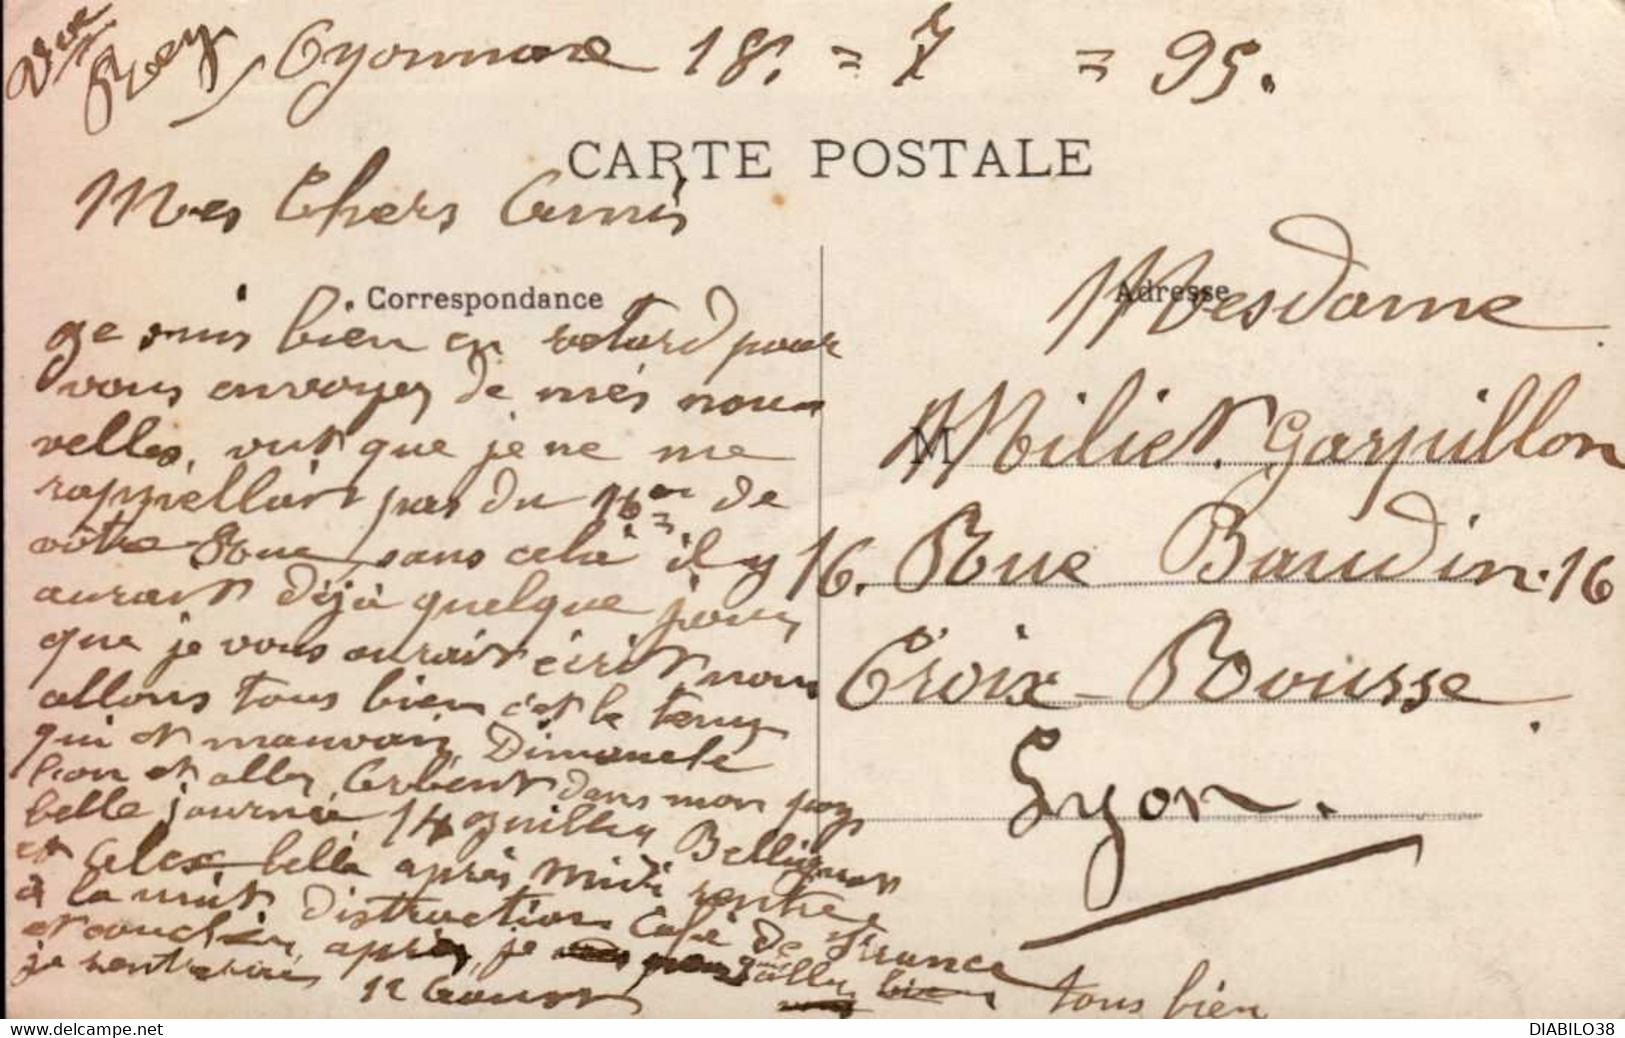 Oyonnax 18 = 7 = 95.
CARTE POSTALE
Mes Chers Amis
Correspondance
Je suis bien en retard pour
vous envoyer de més nou-
velles, vut que je ne me
rappellait pas du N°16 de
vôtre Rue, sans celà il y
aurait déjà quelque jours
que je vous aurait écrit, nous
allons tous bien c'et le temp
qui et mauvais, Dimanche
Léon et aller Arbent dans mon pays
belle journée 14 Juillet Bellignat
et Alex belle après midi rentré
à la nuit distraction Café de France
et coucher, après, je
je rentrerai 12 Aoust
aller
tous bien
Adresse
Mesdame
M Miliet. Garpillon
16. Rue Baudin. 16
Croix-Rousse
Lyon.
DIABILO38